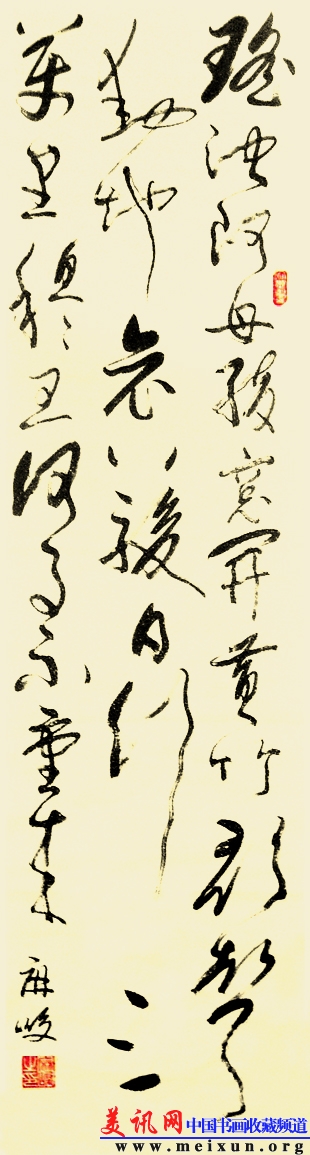 瑤池阿母綺窗開黃竹歌聲
動地哀八駿日行三
萬里穆王何事不重來
麻峻
美讯网 中国书画收藏频道
www.meixun.org